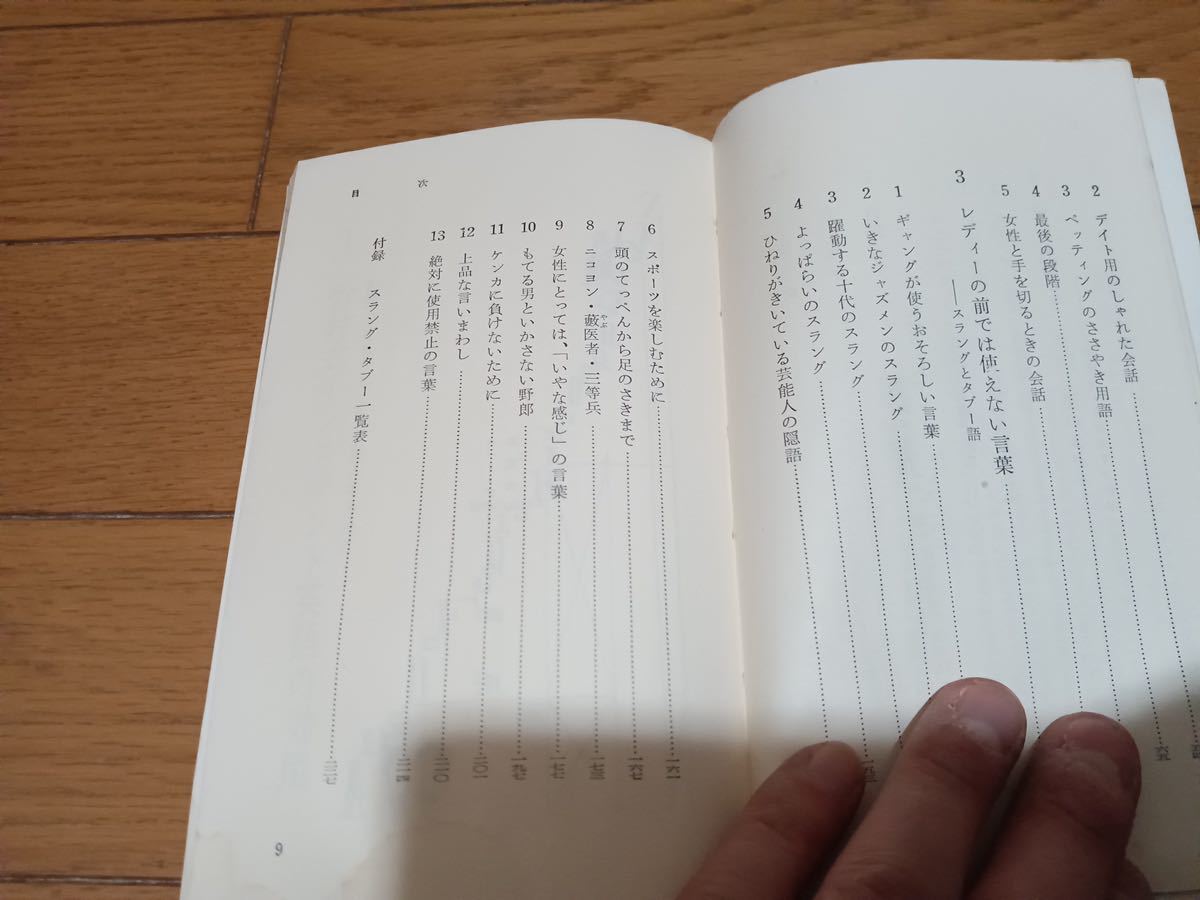 2 デイト用のしゃれた会話
3 ペッティングのささやき用語 六五
4 最後の段階
5 女性と手を切るときの会話
3 レディーの前では使えない言葉
——スラングとタブー語
1 ギャングが使うおそろしい言葉
2 いきなジャズメンのスラング
3 躍動する十代のスラング
4 よっぱらいのスラング
5 ひねりがきいている芸能人の隠語
6 スポーツを楽しむために 一六一
7 頭のてっぺんから足のさきまで 一六七
8 ニコヨン・藪医者・三等兵 一七三
やぶ
9 女性にとっては、「いやな感じ」の言葉
10 もてる男といかさない野郎 一九七
11 ケンカに負けないために 二〇一
12 上品な言いまわし 二一〇
13 絶対に使用禁止の言葉 二一四
付録 スラング・タブー一覧表
目次
9